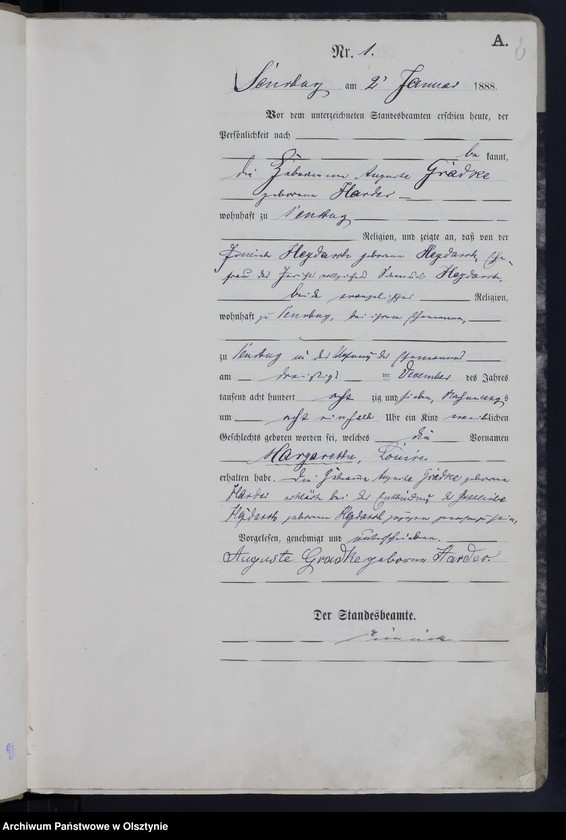 A.
Nr. 1.
Sensburg am 2 Januar 1888.
Vor dem unterzeichneten Standesbeamten erschien heute, der
Persönlichkeit nach
be kannt,
die Hebamme Auguste Gradke
geborene Harder
wohnhaft zu Sensburg
Religion, und zeigte an, daß von der
Heydasch geborene Heydasch, Ehe-
frau des Samuel Heydasch,
beide evangelischer Religion,
wohnhaft zu Sensburg, bei ihrem Ehemanne,
zu Sensburg in der Wohnung des Ehemannes
am dreißigsten Dezember des Jahres
tausend acht hundert acht zig und sieben, Nachmittags
um acht einhalb Uhr ein Kind weiblichen
Geschlechts geboren worden sei, welches die Vornamen
Margarethe, Louise
erhalten habe. Die Hebamme Auguste Gradke geborene
Harder erklärte bei der Entbindung der
Heydasch geborene Heydasch zugegen gewesen zu sein,
Vorgelesen, genehmigt und unterschrieben.
Auguste Gradke geborene Harder
Der Standesbeamte.
Archiwum Państwowe w Olsztynie